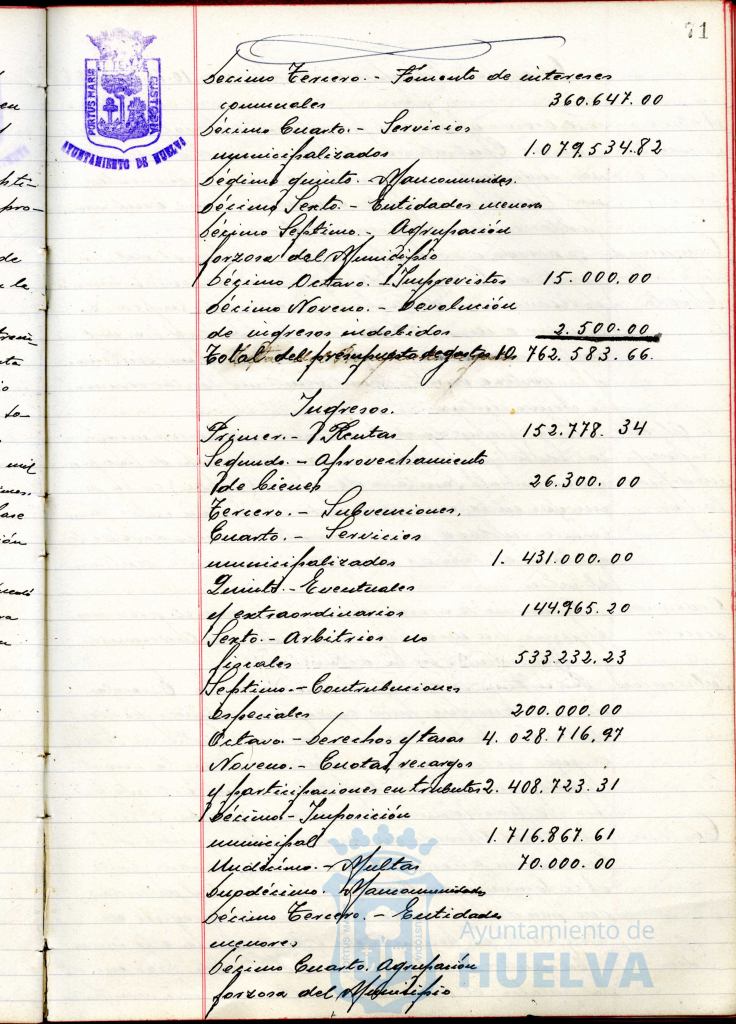 71
PORTUS MARIS
CUSTODIA
AYUNTAMIENTO DE HUELVA
Décimo Tercero.- Fomento de intereses
comunales 360.647.00
Décimo Cuarto.- Servicios
municipalizados 1.079.534.82
Décimo quinto.- Mancomunides.
Décimo Sexto.- Entidades menores
Décimo Septimo.- Agrupación
forzosa del Municipio
Décimo Octavo. Imprevistos 15.000.00
Décimo Noveno.- Devolución
de ingresos indebidos 2.500.00
Total del presupuesto de gastos 10. 762.583.66.
Ingresos.
Primer.- Rentas 152.778. 34
Segundo.- Aprovechamiento
de bienes 26.300. 00
Tercero.- Subvenciones.
Cuarto.- Servicios
municipalizados 1. 431.000.00
Quinto.- Eventuales
y extraordinarios 144.965.20
Sexto.- Arbitrios no
fiscales 533.232.23
Septimo.- Contribuciones
especiales 200.000.00
Octavo.- Derechos y tasas 4. 028.716,97
Noveno.- Cuotas, recargos
y participaciones en tributos 2. 408.723.31
Décimo.- Imposición
municipal 1.716.867.61
Undécimo.- Multas 70.000.00
Duodécimo. Mancomunidades
Décimo Tercero.- Entidades
menores
Décimo Cuarto. Agrupación
forzosa del Municipio
Ayuntamiento de
HUELVA